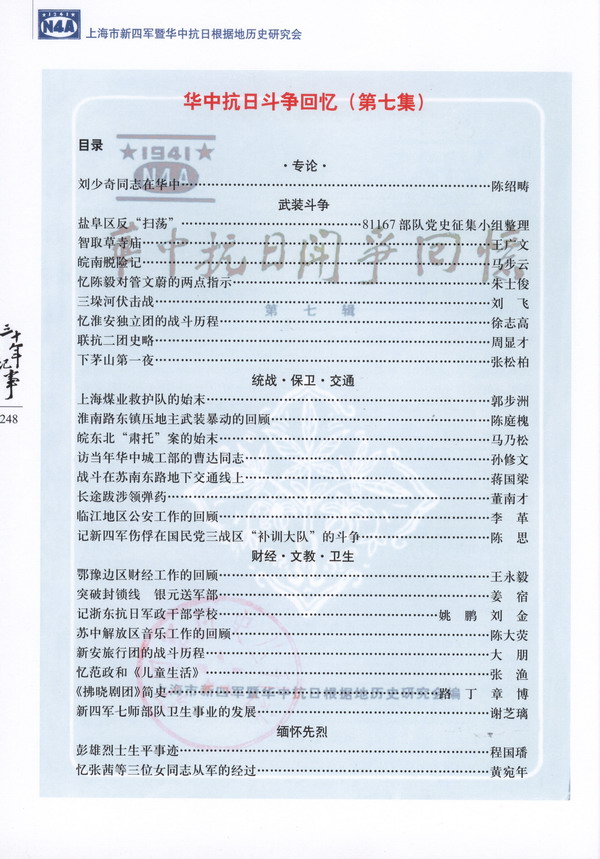 N4A
上海市新四军暨华中抗日根据地历史研究会
华中抗日斗争回忆（第七集）
目录
★1941★
N4A
·专论·
刘少奇同志在华中……陈绍畴
武装斗争
盐阜区反“扫荡”……81167部队党史征集小组整理
智取草寺庙……王广文
皖南脱险记……马步云
华中抗日斗争回忆
忆陈毅对管文蔚的两点指示……朱士俊
三垛河伏击战……刘 飞
第七辑
忆淮安独立团的战斗历程……徐志高
联抗二团史略……周显才
下茅山第一夜……张松柏
统战·保卫·交通
上海煤业救护队的始末……郭步洲
淮南路东镇压地主武装暴动的回顾……陈庭槐
皖东北“肃托”案的始末……马乃松
访当年华中城工部的曹达同志……孙修文
战斗在苏南东路地下交通线上……蒋国梁
长途跋涉领弹药……董南才
临江地区公安工作的回顾……李 革
记新四军伤俘在国民党三战区“补训大队”的斗争……陈 思
财经·文教·卫生
鄂豫边区财经工作的回顾……王永毅
突破封锁线 银元送军部……姜 宿
记浙东抗日军政干部学校……姚 鹏 刘 金
苏中解放区音乐工作的回顾……陈大荧
新安旅行团的战斗历程……大 朋
忆范政和《儿童生活》……张 渔
《拂晓剧团》简史……路 丁 章 博
上海市新四军暨华中抗日根据地历史研究会编
新四军七师部队卫生事业的发展……谢芝璃
缅怀先烈
彭雄烈士生平事迹……程国璠
忆张茜等三位女同志从军的经过……黄宛年
三十年纪事
248